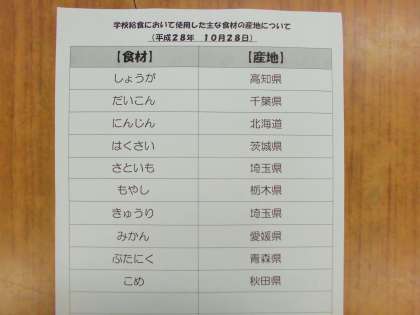 学校給食において使用した主な食材の産地について
（平成２８年　１０月２８日）
【食材】　【産地】
しょうが　高知県
だいこん　千葉県
にんじん　北海道
はくさい　茨城県
さといも　埼玉県
もやし　栃木県
きゅうり　埼玉県
みかん　愛媛県
ぶたにく　青森県
こめ　秋田県